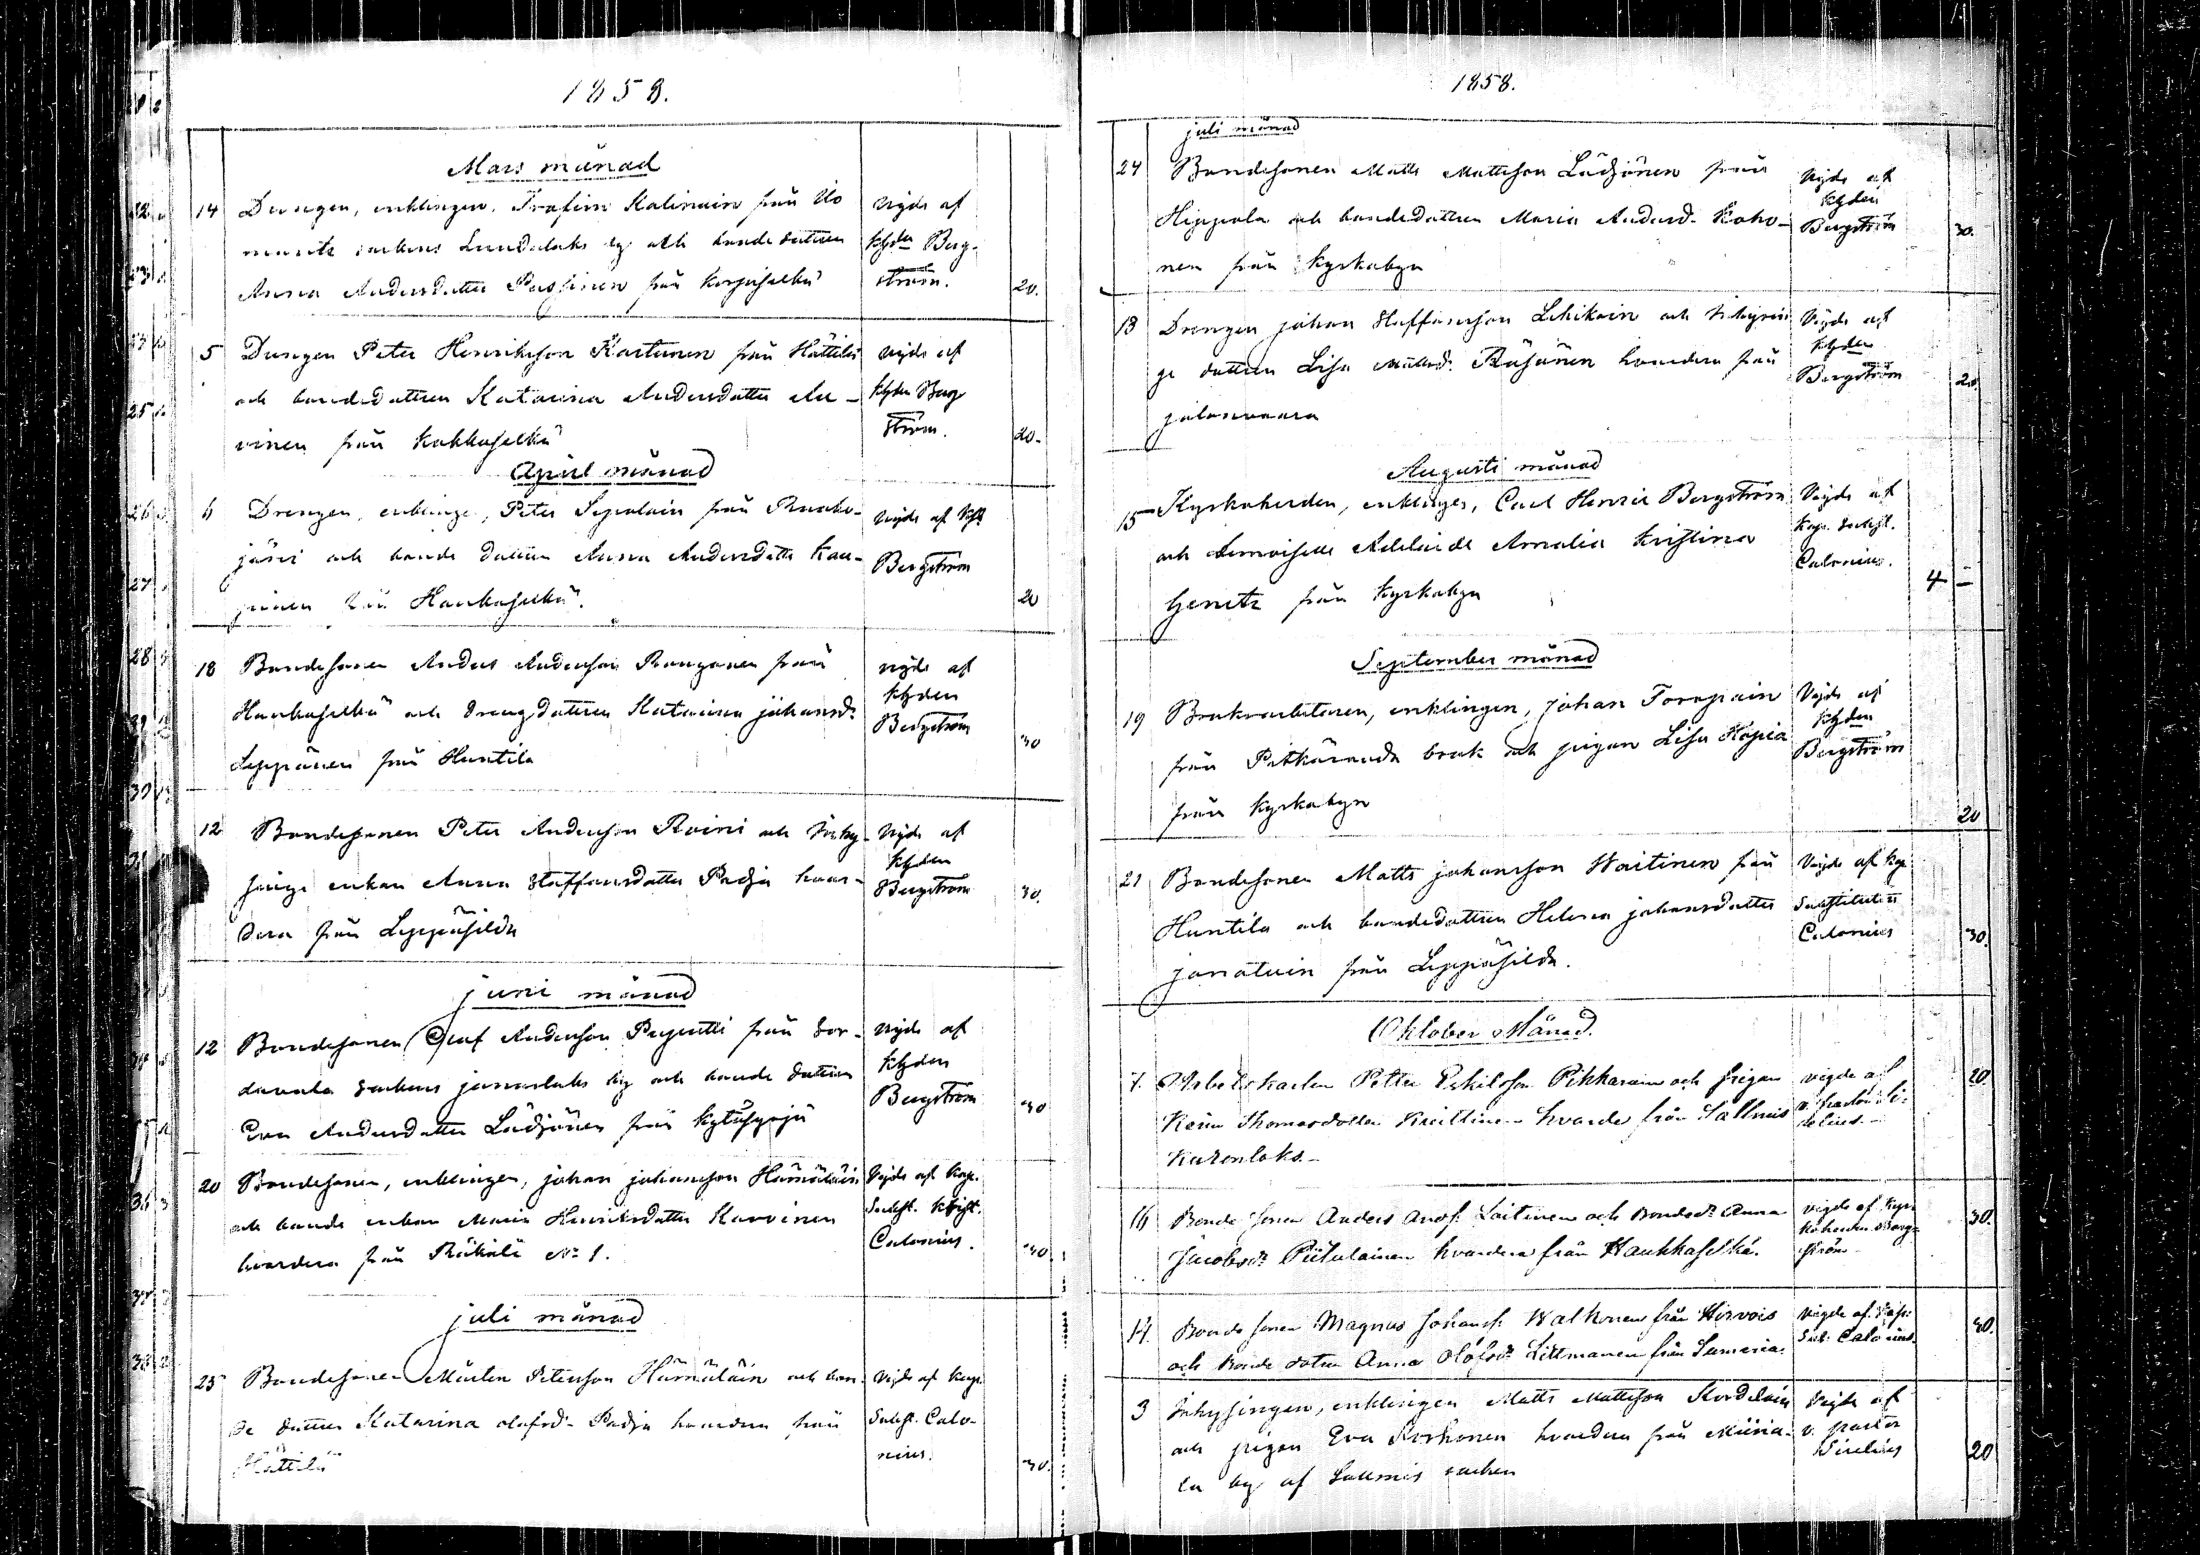 1858.
Mars månad
14 Drengen, enklingen, Trofim Kalinain från Uo
mants sockens Lundalaks by och bondedottren
Anna Andersdotter Pessinen från Korpiselkä
vigde af
khden Berg-
ström.
20.
5 Drengen Peter Henriksson Kartunen från Hättilä
och bondedottren Katarina Andersdotter Au-
vinen från Kokkaselkä
vigde af
khden Berg
ström.
20.
April månad
6 Drengen, enklinge, Peter Sepolain från Ruoko-
järvi och bonde dottren Anna Andersdotter Kau-
pinen från Haukaselkä.
vigde af khd
Bergström
20
18 Bondesonen Anders Andersson Rouganen från
Haukaselkä och drengdottren Katarina johansd:
Leppänen från Huntila
vigde af
khden
Bergström
30
12 Bondesonen Peter Andersson Roini och Inhy-
singe enkan Anna Staffansdotter Padja hvar-
dera från Leppäsilda
vigde af
khden
Bergström
30.
juni månad
12 Bondesonen Olaf Andersson Pajuttli från Sor-
davala sockens jänislaks by och bonde dottren
Eva Andersdotter Lädjönen från Kytösyrjä
vigde af
khden
Bergström
30
20 Bondesonen, enklingen, johan johansson Hämäläin
och bonde enkan Maria Henriksdotter Karvinen
hvardera från Räkälä No 1.
Vigde af kap.
Subst.
Calonius.
30.
juli månad
25 Bondesonen Mårten Petersson Hämäläin och bon-
de dottren Katarina olofsd: Padja hvardera från
Hättilä
Vigde af kap.
Subst. Calo-
nius.
30.
1858.
juli månad
24 Bondesonen Matts Mattsson Lädjönen från
Hippola och bondedottren Maria Andersd: Koko-
nen från kyrkobyn
Vigde af
khden
Bergström
30.
13 Drengen johan Staffansson Lehikoin och inhysin
ge dottren Lisa Mattsd: Räsänen hvardera från
jalovaara
Vigde af
khden
Bergström
20.
Augusti månad
15 Kyrkoherden, enklingen, Carl Henric Bergström
och Demoiselle Adelaide Amalia Kristina
Genetz från kyrkobyn
Vigde af
Kap. Subst.
Calonius.
4 –
September månad
19 Bruksarbetaren, enklingen, johan Toropain
från Pitkäranda bruk och pigan Lisa Kopia
från kyrkobyn
Vigde af
khden
Bergström
20
21 Bondesonen Matts johansson Waitinen från
Huntila och bondedottren Helena johansdotter
janatuin från Leppäsilda.
Vigde af kap
Substituten
Calonius
30.
Oktober Månad.
7. Arbetskarlen Petter Eskilsson Pikkarain och pigan
Karin Thomasdotter Kuittinen hvarde från Sallmis
Karonlaks.
vigde af
v. pastor Si-
relius
20.
16 Bonde sonen Anders Andss: Laitinen och Bonded: Anna
Jacobsd: Piitulainen hvardera från Haukkaselkä.
vigde af kyr-
koherden Berg-
ström
30.
14. Bonde sonen Magnus Johanss: Walkonen från Hirvois
och bonde dotren Anna Olofsd: Littmanen från Sumeria
vigde af Kap:
Sub: Calonius
30.
3 Inhysingen, enklingen Matts Mattsson Kordelain
och pigan Eva Korhonen hvardera från Miina-
la by af Sallmis socken
Vigde af
v. pastor
Sirelius
20